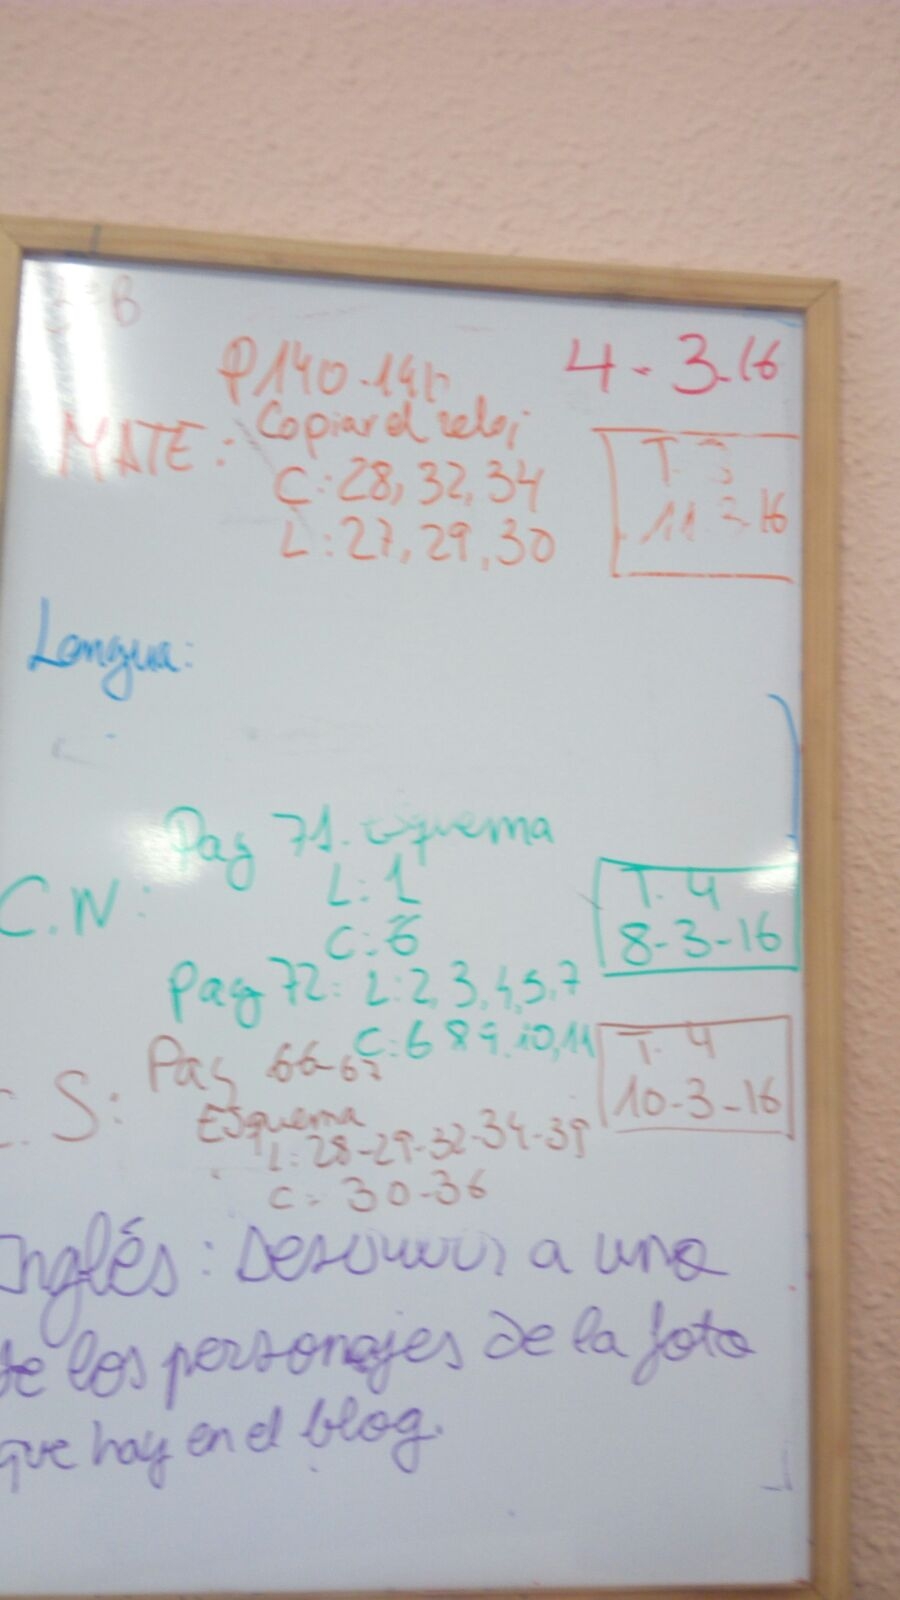 B
4-3-16
P140-141
MATE: Copiar el reloj
C: 28, 32, 34
L: 27, 29, 30
T. 3
11.3.16
Lengua:
Pag 71. Esquema
C.N: L: 1
C: 6
T. 4
8-3-16
Pag 72: L: 2, 3, 4, 5, 7
C: 6 8 9. 10, 11
C.S: Pag 66-67
Esquema
L: 28-29-32-34-39
C: 30-36
T. 4
10-3-16
Inglés: Describir a una
de los personajes de la foto
que hay en el blog.